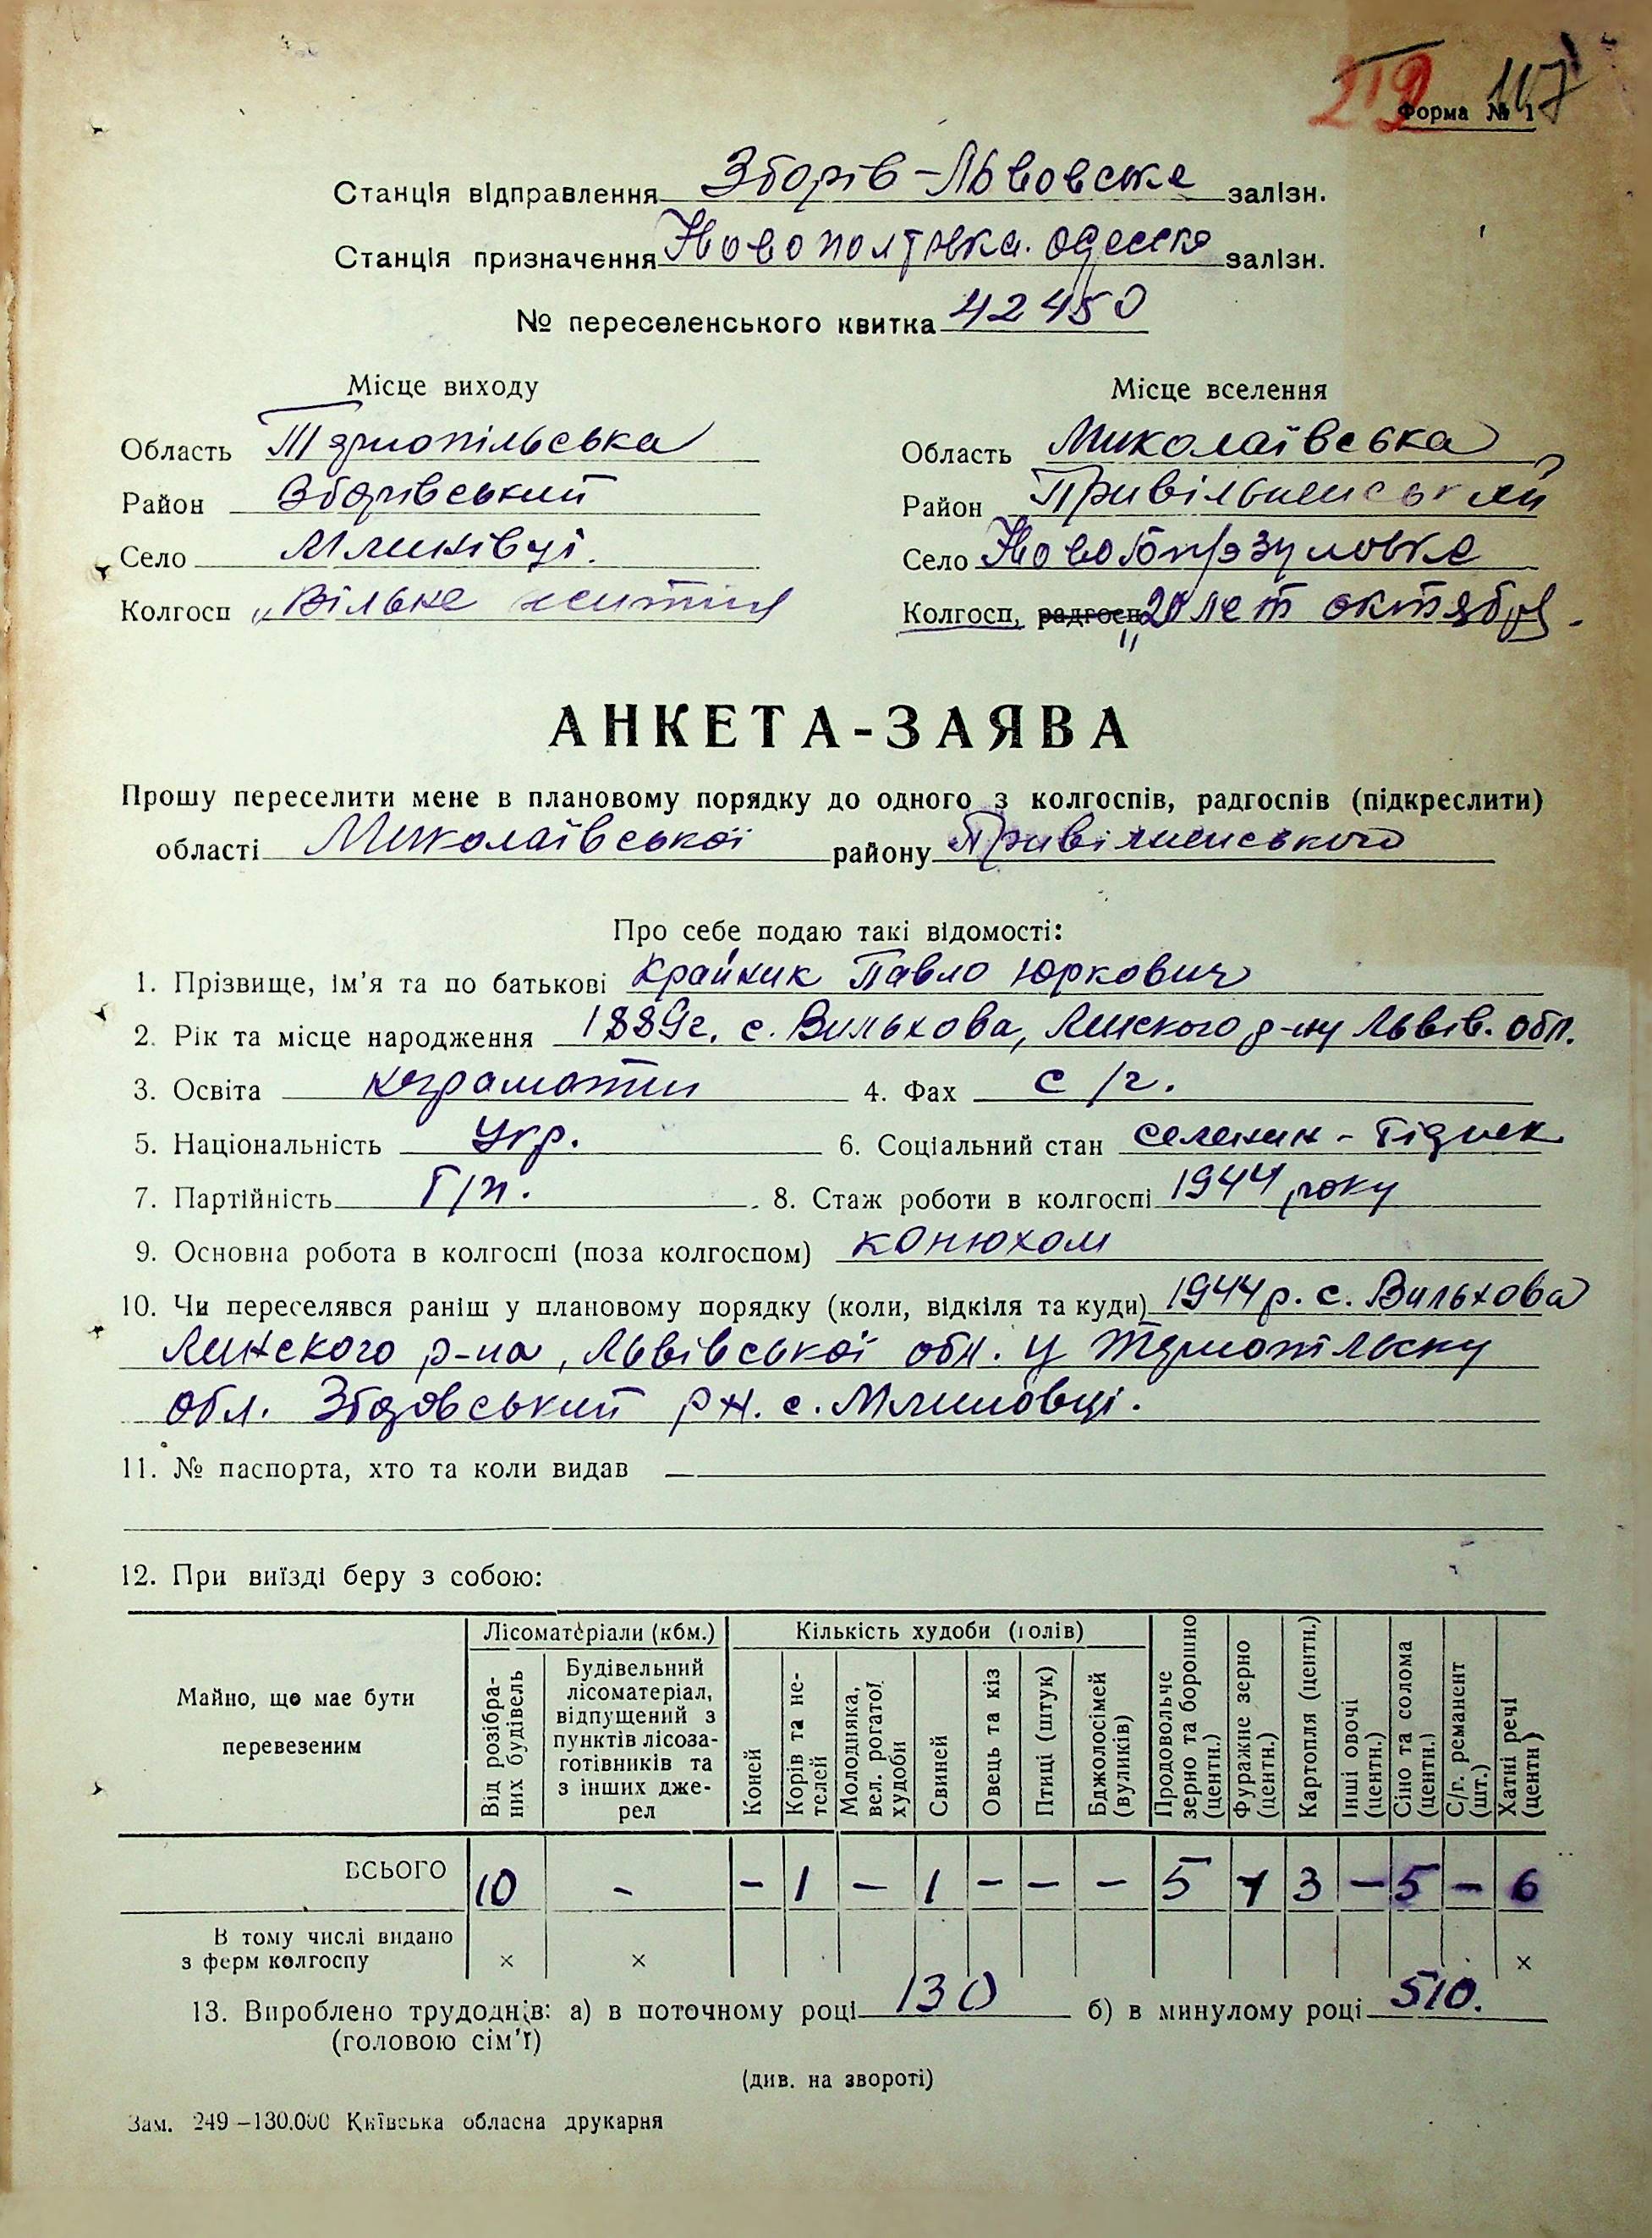 219 117
Форма № 1
Станція відправлення Зборів-Львовське залізн.
Станція призначення Новополтавка. Одеське залізн.
№ переселенського квитка 42450
Місце виходу
Місце вселення
Область Тернопільська
Область Миколаївська
Район Зборівський
Район Привільненський
Село Млинівці.
Село
Колгосп „Вільне життя
Колгосп, радгосп „20 лет октября.
АНКЕТА-ЗАЯВА
Прошу переселити мене в плановому порядку до одного з колгоспів, радгоспів (підкреслити)
області Миколаївської району Привільненського
Про себе подаю такі відомості:
1. Прізвище, ім'я та по батькові Крайник Павло Юркович
2. Рік та місце народження 1889г. с. Вильхова, Лиского р-ну Львів. обл.
3. Освіта неграмотний 4. Фах с/г.
5. Національність Укр. 6. Соціальний стан селянин - бідняк
7. Партійність б/п. 8. Стаж роботи в колгоспі 1944 року
9. Основна робота в колгоспі (поза колгоспом) конюхом
10. Чи переселявся раніш у плановому порядку (коли, відкіля та куди) 1944р. с. Вильхова
Линского р-на, Львівської обл. у Тернопільску
обл. Зборовський рн. с. Млиновці.
11. № паспорта, хто та коли видав —
12. При виїзді беру з собою:
Майно, що має бути перевезеним
Лісоматеріали (кбм.)
Кількість худоби (голів)
Від розібраних будівель
Будівельний лісоматеріал, відпущений з пунктів лісозаготівників та з інших джерел
Коней
Корів та нетелей
Молодняка, вел. рогатої худоби
Свиней
Овець та кіз
Птиці (штук)
Бджолосімей (вуликів)
Продовольче зерно та борошно (центн.)
Фуражне зерно (центн.)
Картопля (центн.)
Інші овочі (центн.)
Сіно та солома (центн.)
С/г. реманент (шт.)
Хатні речі (центн)
ВСЬОГО 10 - - 1 - 1 - - - 5 3 - 5 - 6
В тому числі видано
з ферм колгоспу × × ×
13. Вироблено трудоднів: а) в поточному році 130 б) в минулому році 510.
(головою сім'ї)
(див. на звороті)
Зам. 249—130.000 Київська обласна друкарня